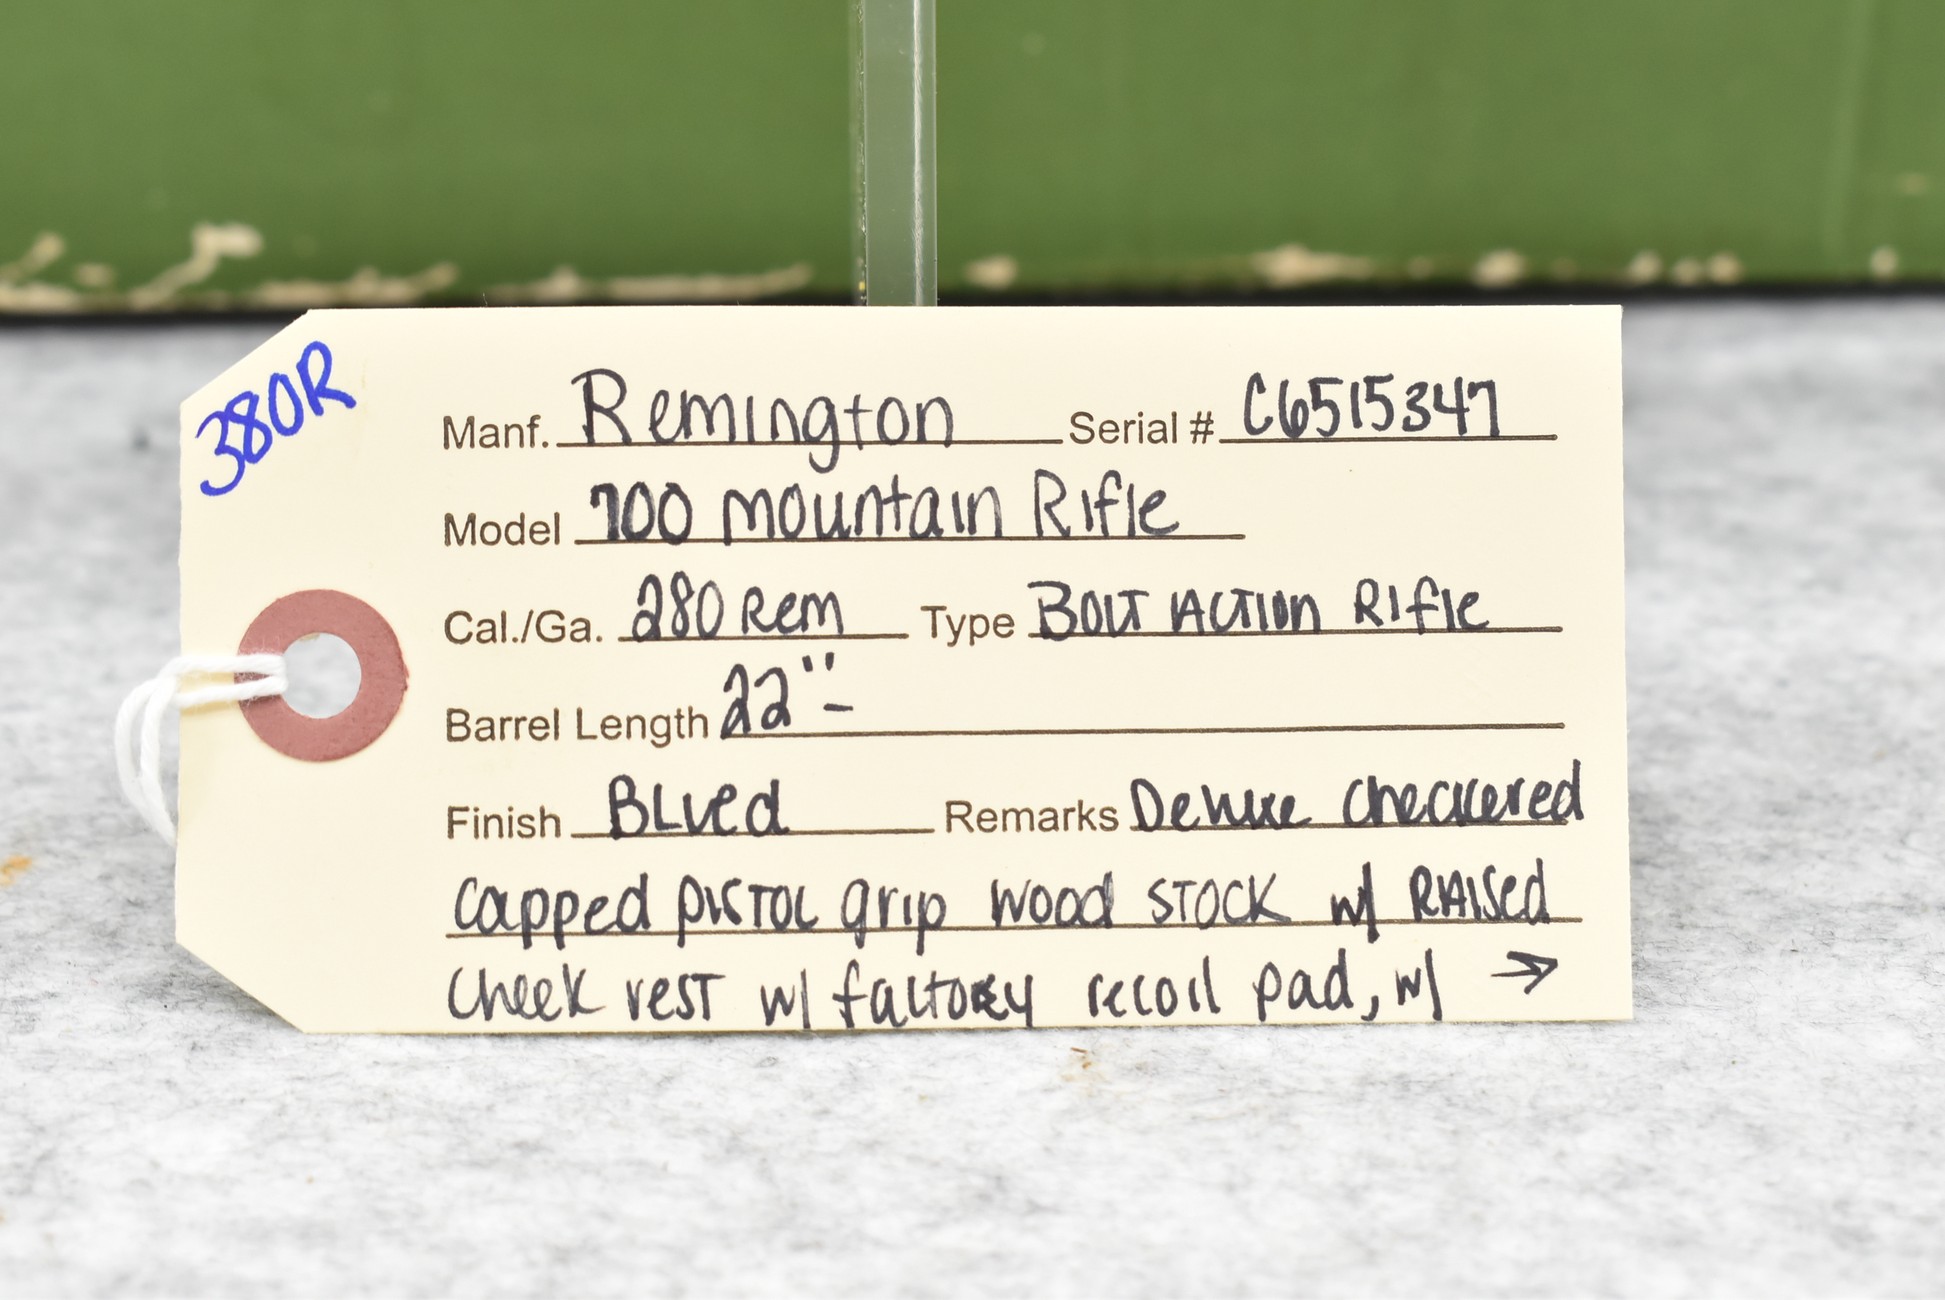 380R
Manf. Remington Serial # C6515347
Model 700 Mountain Rifle
Cal./Ga. 280 Rem Type Bolt Action Rifle
Barrel Length 22"-
Finish Blued Remarks Deluxe checkered
capped pistol grip wood stock w/ raised
cheek rest w/ factory recoil pad, w/ →